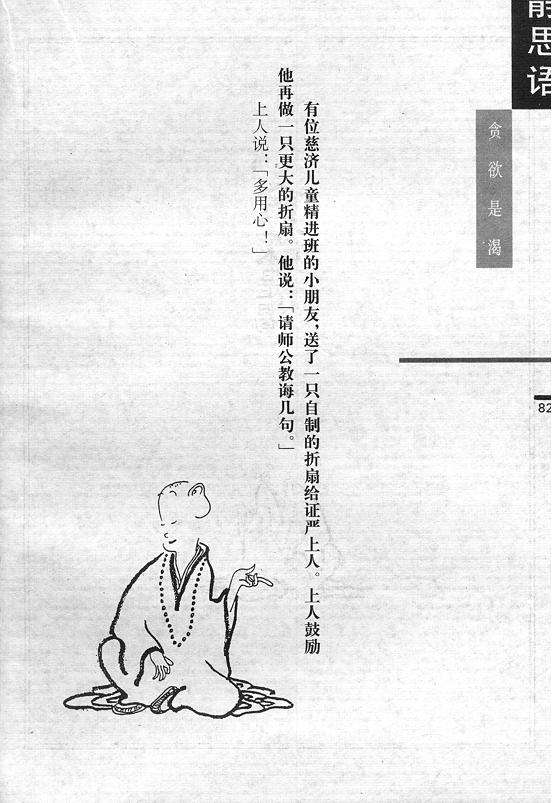 静思语
贪欲是渴
82
有位慈济儿童精进班的小朋友,送了一只自制的折扇给证严上人。上人鼓励
他再做一只更大的折扇。他说:「请师公教诲几句。」
上人说:「多用心!」